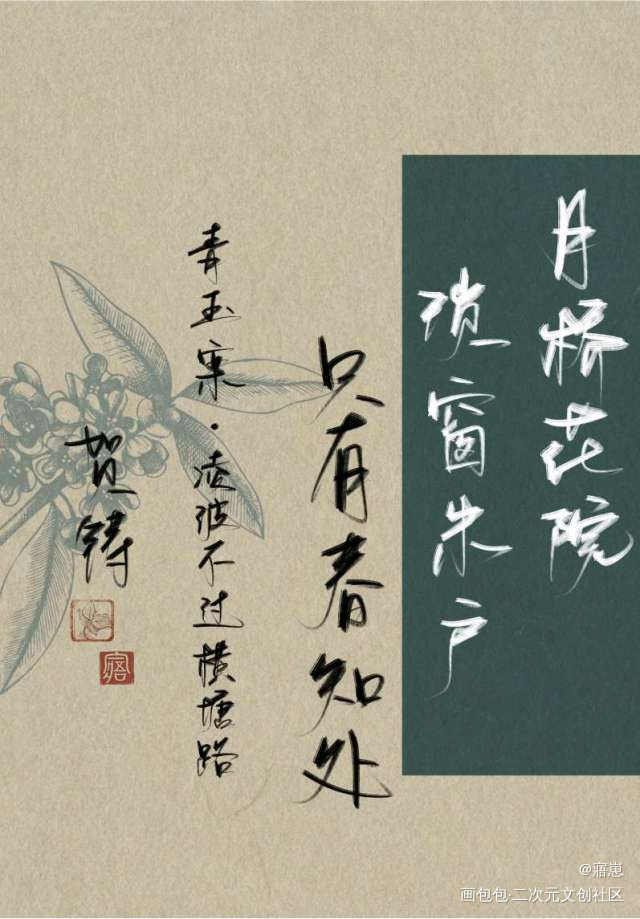 月桥花院
琐窗朱户
只有春知处
青玉案·凌波不过横塘路
贺铸
寤
@寤崽
画包包·二次元文创社区